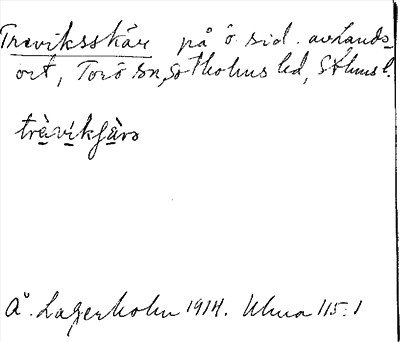 Treviksskär på ö. sid. av Lands-
ort, Torö sn, Sotholms hd, Sthms l.
trèvikʃæ̀rə
Å. Lagerholm 1914. Ulma 115:1